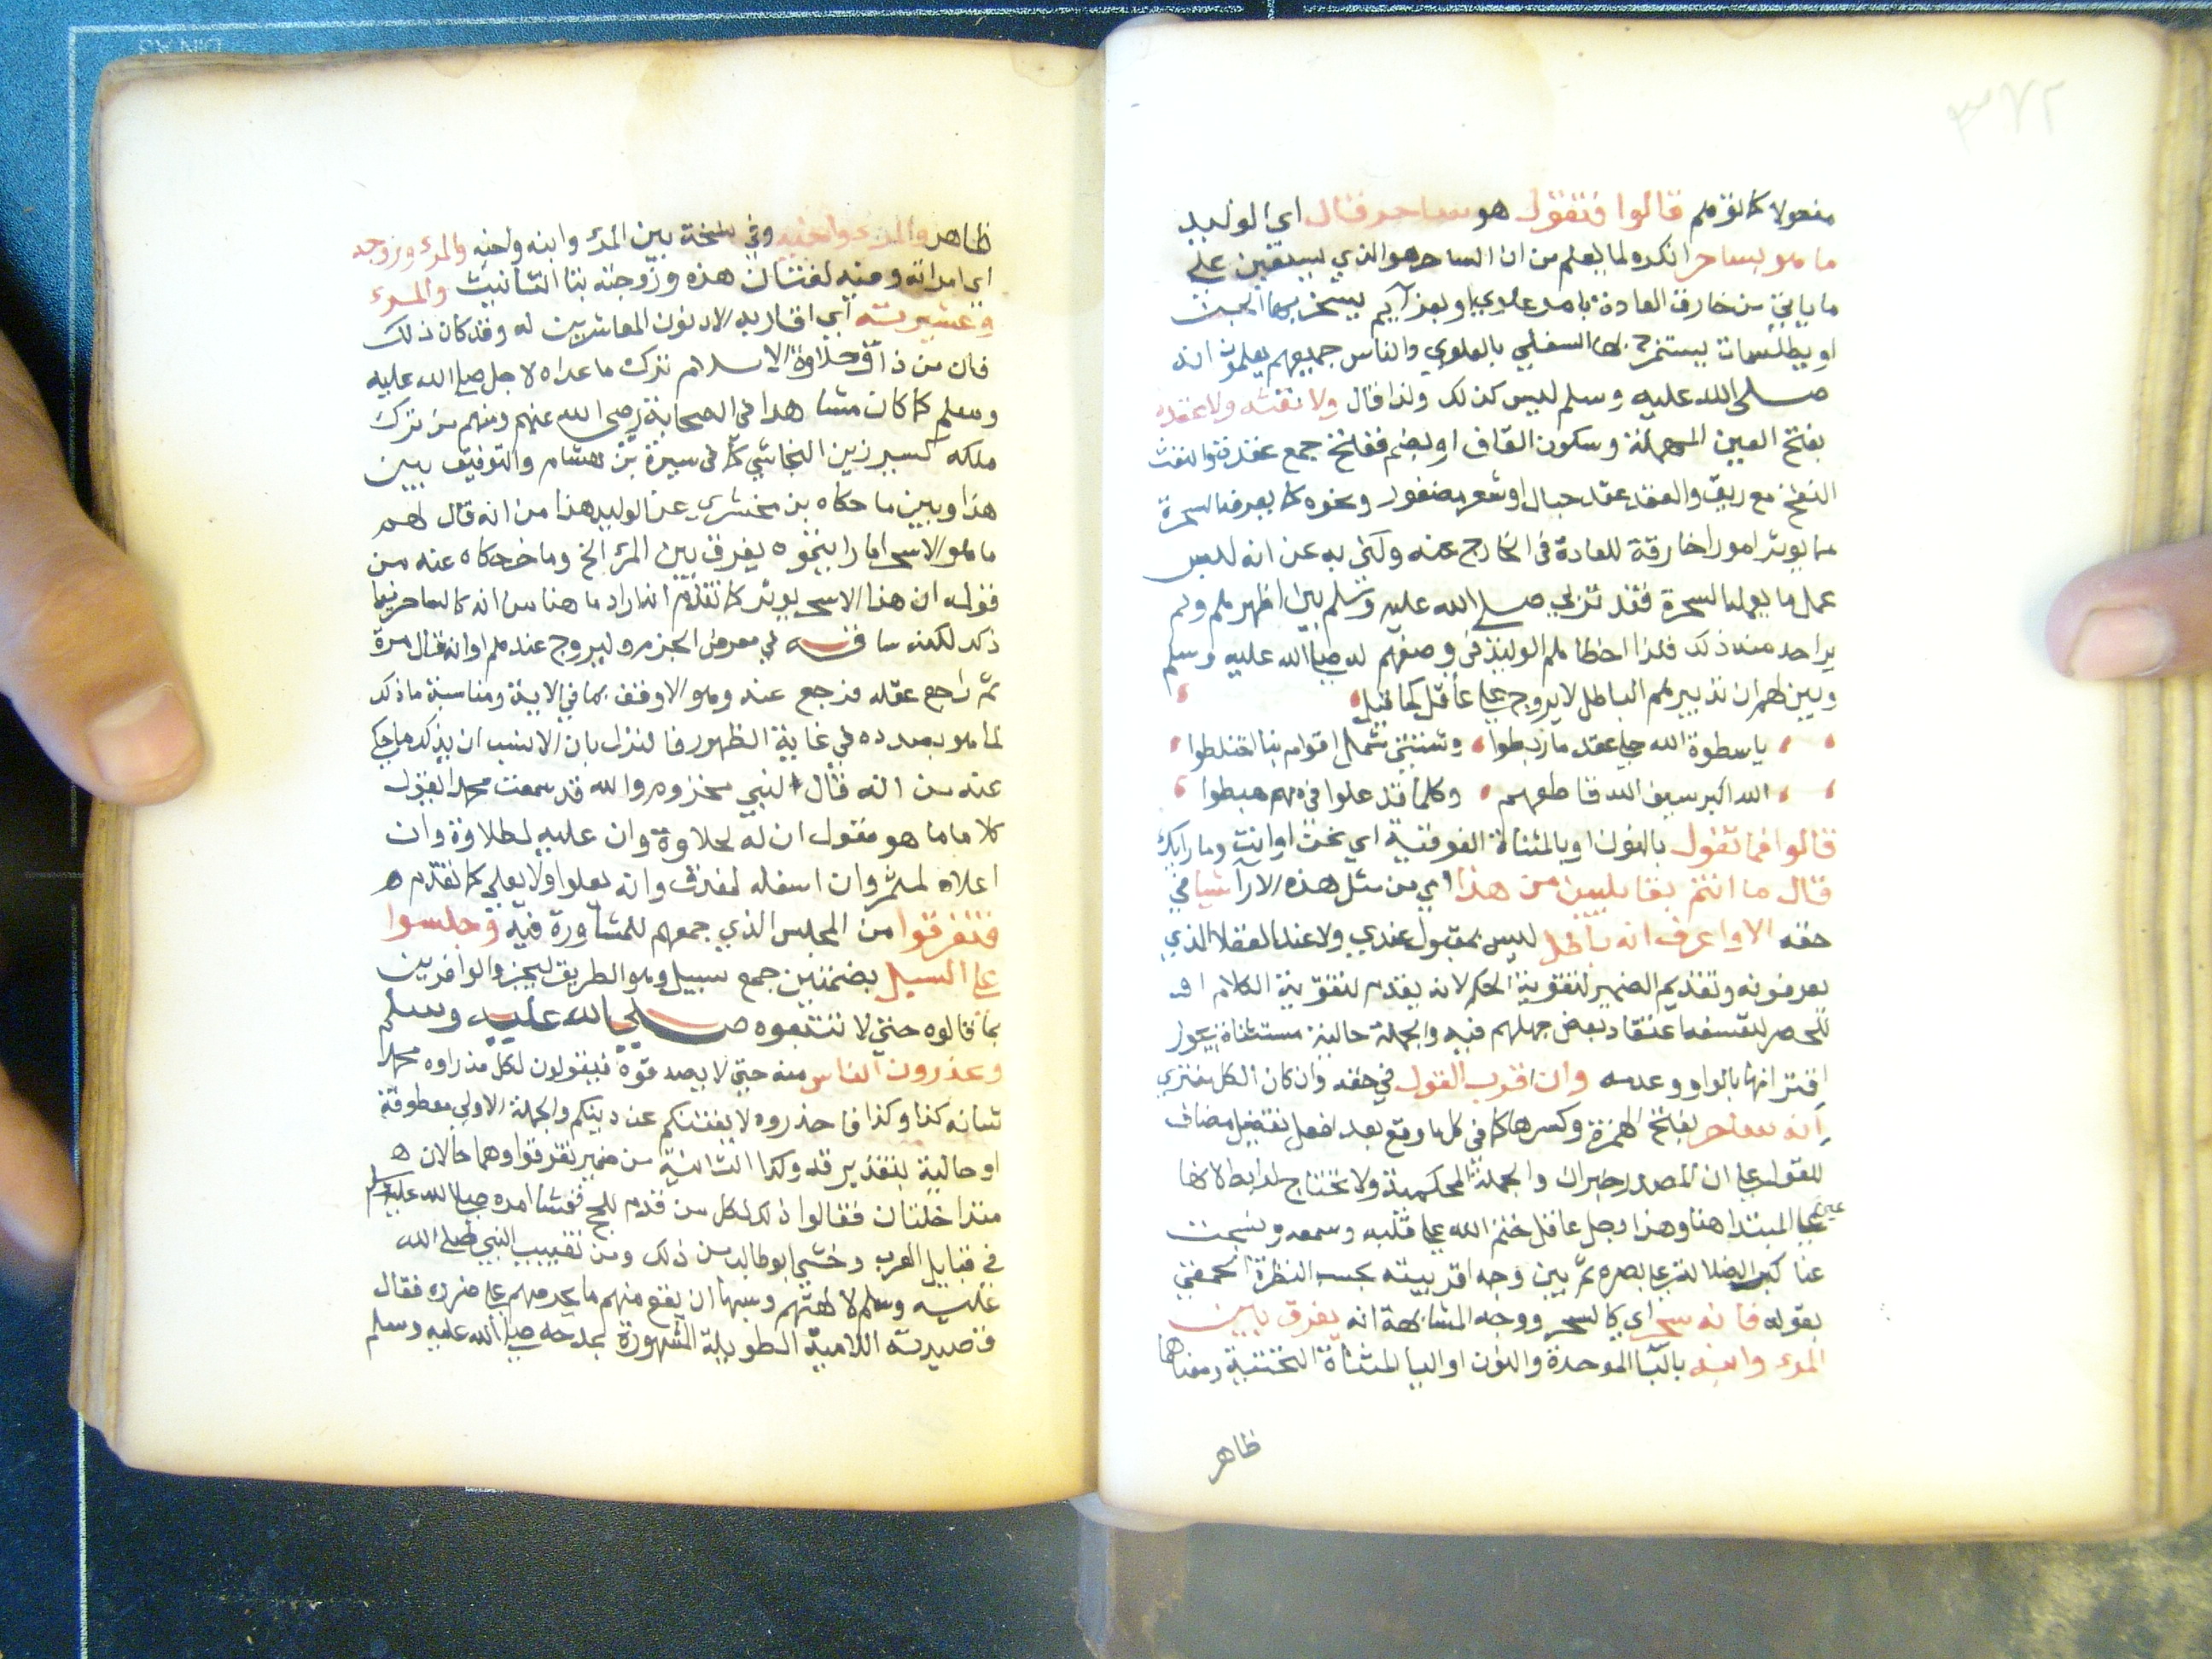 ٣٧٢
مفعولا كما توهم قالوا فنقول هو ساحر فقال اي الوليد
ما هو بساحر انكره لما يعلم من ان الساحر هو الذي يستعين على
ما ياتي من خارق العادة بامر علوي او بعزايم يسخر بها الجن
او بطلسمات يستنزج بها السفلي بالعلوي والناس جميعهم يعلمون انه
صلى الله عليه وسلم ليس كذلك ولذا قال ولا نفثه ولا عقده
بفتح العين المهملة وسكون القاف او بضم ففتح جمع عقدة والنفث
النفخ مع ريق والعقد عقد حبال او شعر مضفور ونحوه كما يعرفه السحرة
مما يوثر امورا خارقة للعادة في الخارج عنه وكنى به عن انه ليس
عمل ما يعمله السحرة فقد تربى صلى الله عليه وسلم بين اظهرهم ولم
ير احد منه ذلك فلذا اخطاهم الوليد في وصفهم له صلى الله عليه وسلم
وبين لهم ان تدبيرهم الباطل لا يروج على عاقل كما قيل
يا سطوة الله حلي عقد ما ربطوا وشتتي شمل اقوام بنا اختلطوا
الله اكبر سيف الله قاطعهم وكلما قد علوا في همهم هبطوا
قالوا فما تقول بالنون او بالمثناة الفوقية اي نحن او انت وما رايك
قال ما انتم بقايلين من هذا اي من مثل هذه الارآ شيا في
حقه الا وا عرف انه باطل ليس بمقبول عندي ولا عند العقلا الذي
يعرفونه وتقديم الضمير لتقوية الحكم لانه يقدم لتقوية الكلام او
للحصر لتقسفه اعتقاد بعض جهلهم فيه والجملة حالية مستثناة يجوز
اقترانها بالواو وعدمه وان اقرب القول في حقه وان كان الكل مفترى
انه ساحر بفتح الهمزة وكسرها كما في كل ما وقع بعد افعل تفضيل مضاف
للقول على ان المصدر خبران والجملة المحكية ولا تحتاج لرابط لانها
عين المبتدا هنا وهذا رجل عاقل ختم الله على قلبه وسمعه ونسجت
عناكب الضلالة على بصره ثم بين وجه اقربيته بحسب النظرة الحمقى
بقوله فانه سحر اي كالسحر ووجه المشابهة انه يفرق به بين
المرء وابنه بالبا الموحدة والنون او اليا المثناة التحتية ومعناهما
ظاهر
ظاهر والمرء واخيه وفي نسخة بين المرء وابنه واخيه والمرء وزوجه
اي امراته وفيه لغتان هذه وزوجته بتا التانيث والمرء
وعشيرته اي اقاربه الادنون المعاشرين له وقد كان ذلك
فان من ذاق حلاوة الاسلام ترك ما عداه لاجل صلى الله عليه
وسلم كما كان مشاهدا في الصحابة رضي الله عنهم ومنهم من ترك
ملكه كسير زين النجاشي كما في سيرة بن هشام والتوفيق بين
هذا وبين ما حكاه بن مخشري عن الوليد هذا من انه قال لهم
ما هو الا ساحر اما رايتموه يفرق بين المرء الخ وما حكاه عنه من
قوله ان هذا الا سحر يوثر كما تقدم انه اراد ما هنا من انه كالساحر فيما
ذكر لكنه ساقه في معرض الجزم وليروج عندهم او انه قال مرة
ثم راجع عقله فرجع عنه وهو الاوفق بما في الاية ومناسبة ما ذكر
لما هو بصدده في غاية الظهور فالنزاع بان الانسب ان يذكر ما حكي
عنه من انه قال لبني مخزوم والله قد سمعت محمدا يقول
كلاما ما هو مقول ان له لحلاوة وان عليه لطلاوة وان
اعلاه لمثمر وان اسفله لمغدق وانه يعلو ولا يعلى كما تقدم ه
فتفرقوا من المجلس الذي جمعهم للمشاورة فيه وجلسوا
على السبل بضمتين جمع سبيل وهو الطريق ليخبروا الوافدين
بما قالوه حتى لا تتبعوه صلى الله عليه وسلم
وحذرون الناس منه حتى لا يصدقوه فيقولون لكل من راوه محمدا
شانه كذا وكذا فاحذروه لا يفتنكم عن دينكم والجملة الاولى معطوفة
او حالية بتقدير قد وكذا الثانية من ضمير تفرقوا وهما حالان ه
متداخلتان فقالوا ذلك لكل من قدم للحج ففشا امره صلى الله عليه وسلم
في قبايل العرب وخشي ابو طالب من ذلك ومن تقبيب النبي صلى الله
عليه وسلم لالهتهم وسبها ان يقع منهم ما يجرمهم على ضرره فقال
قصيدته اللامية الطويلة المشهورة بمدحه صلى الله عليه وسلم